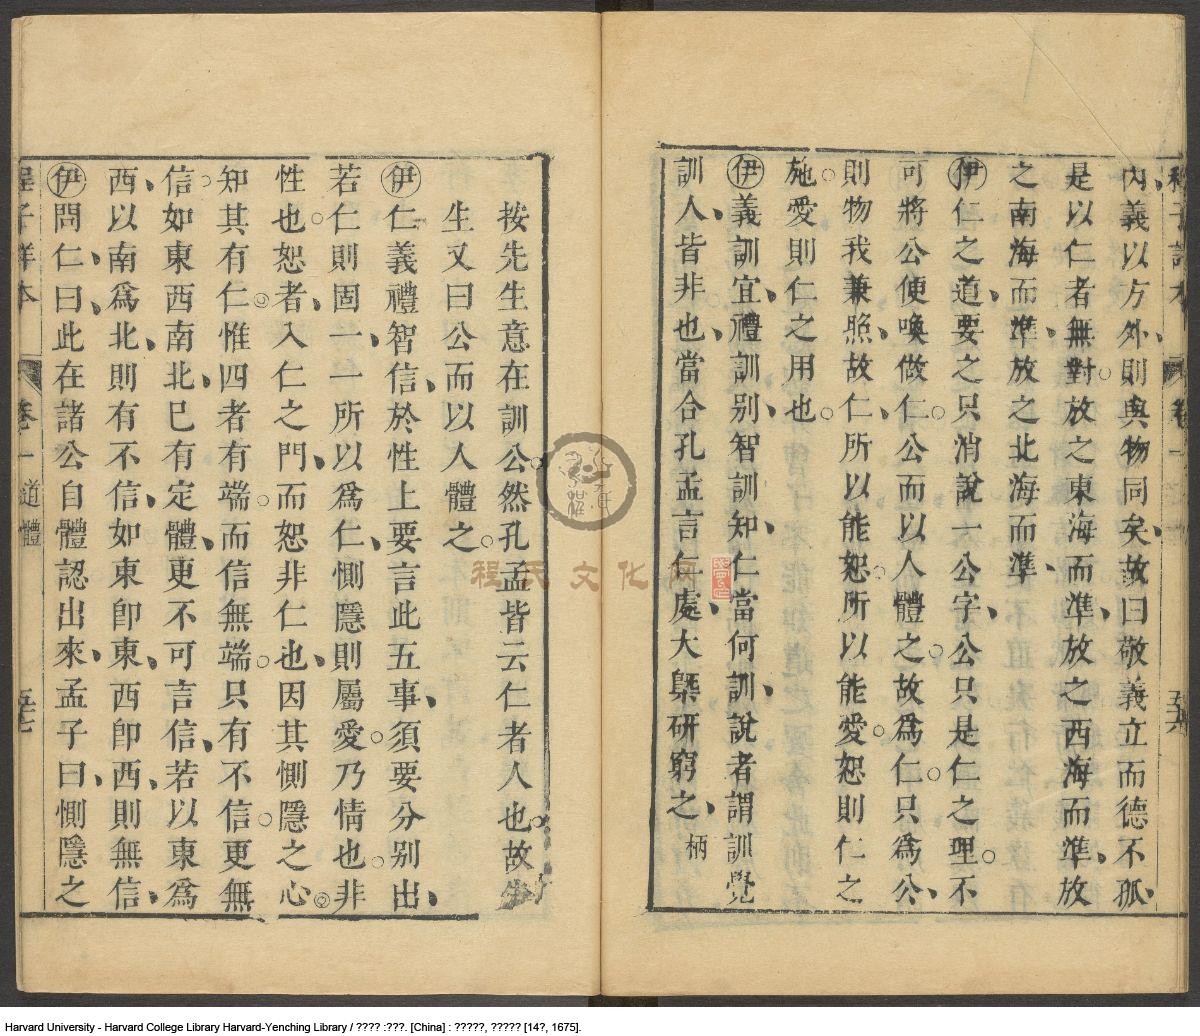 內義以方外則與物同矣故曰敬義立而德不孤
是以仁者無對放之東海而準放之西海而準放
之南海而準放之北海而準
伊仁之道要之只消說一公字公只是仁之理不
可將公便喚做仁公而以人體之故爲仁只爲公
則物我兼照故仁所以能恕所以能愛恕則仁之
施愛則仁之用也
伊義訓宜禮訓別智訓知仁當何訓說者謂訓覺
訓人皆非也當合孔孟言仁處大槩研窮之 柄
按先生意在訓公然孔孟皆云仁者人也故先
生又曰公而以人體之
伊仁義禮智信於性上要言此五事須要分別出
若仁則固一一所以爲仁惻隱則屬愛乃情也非
性也恕者入仁之門而恕非仁也因其惻隱之心
知其有仁惟四者有端而信無端只有不信更無
信如東西南北已有定體更不可言信若以東爲
西以南爲北則有不信如東卽東西卽西則無信
伊問仁曰此在諸公自體認出來孟子曰惻隱之
程子詳本 卷一 道體 五七
程氏文化网
Harvard University - Harvard College Library Harvard-Yenching Library / ???? :???. [China] : ?????, ????? [14?, 1675].